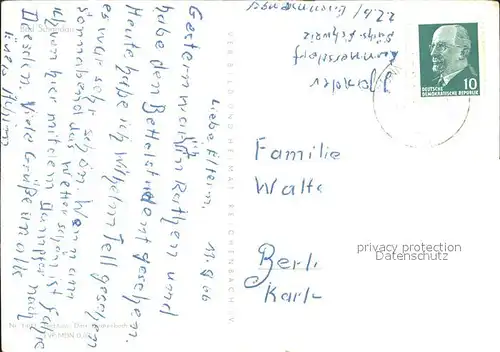 Bad Schandau
Liebe Eltern, 11.8.66
Gestern war ich in Rathen und
habe den Bettelstudent gesehen.
Heute habe ich Wilhelm Tell gesehen
es war sehr schön. Wenn am
Sonnabend das Wetter schön ist fahre
ich von hier mit dem Dampfer nach
Dresden. Viele Grüße an alle
VEB BILD UND HEIMAT REICHENBACH I. V.
Sächs. Schweiz
DEUTSCHE
DEMOKRATISCHE REPUBLIK
10
Familie
Walte
Berli
Karl
privacy protection
Datenschutz